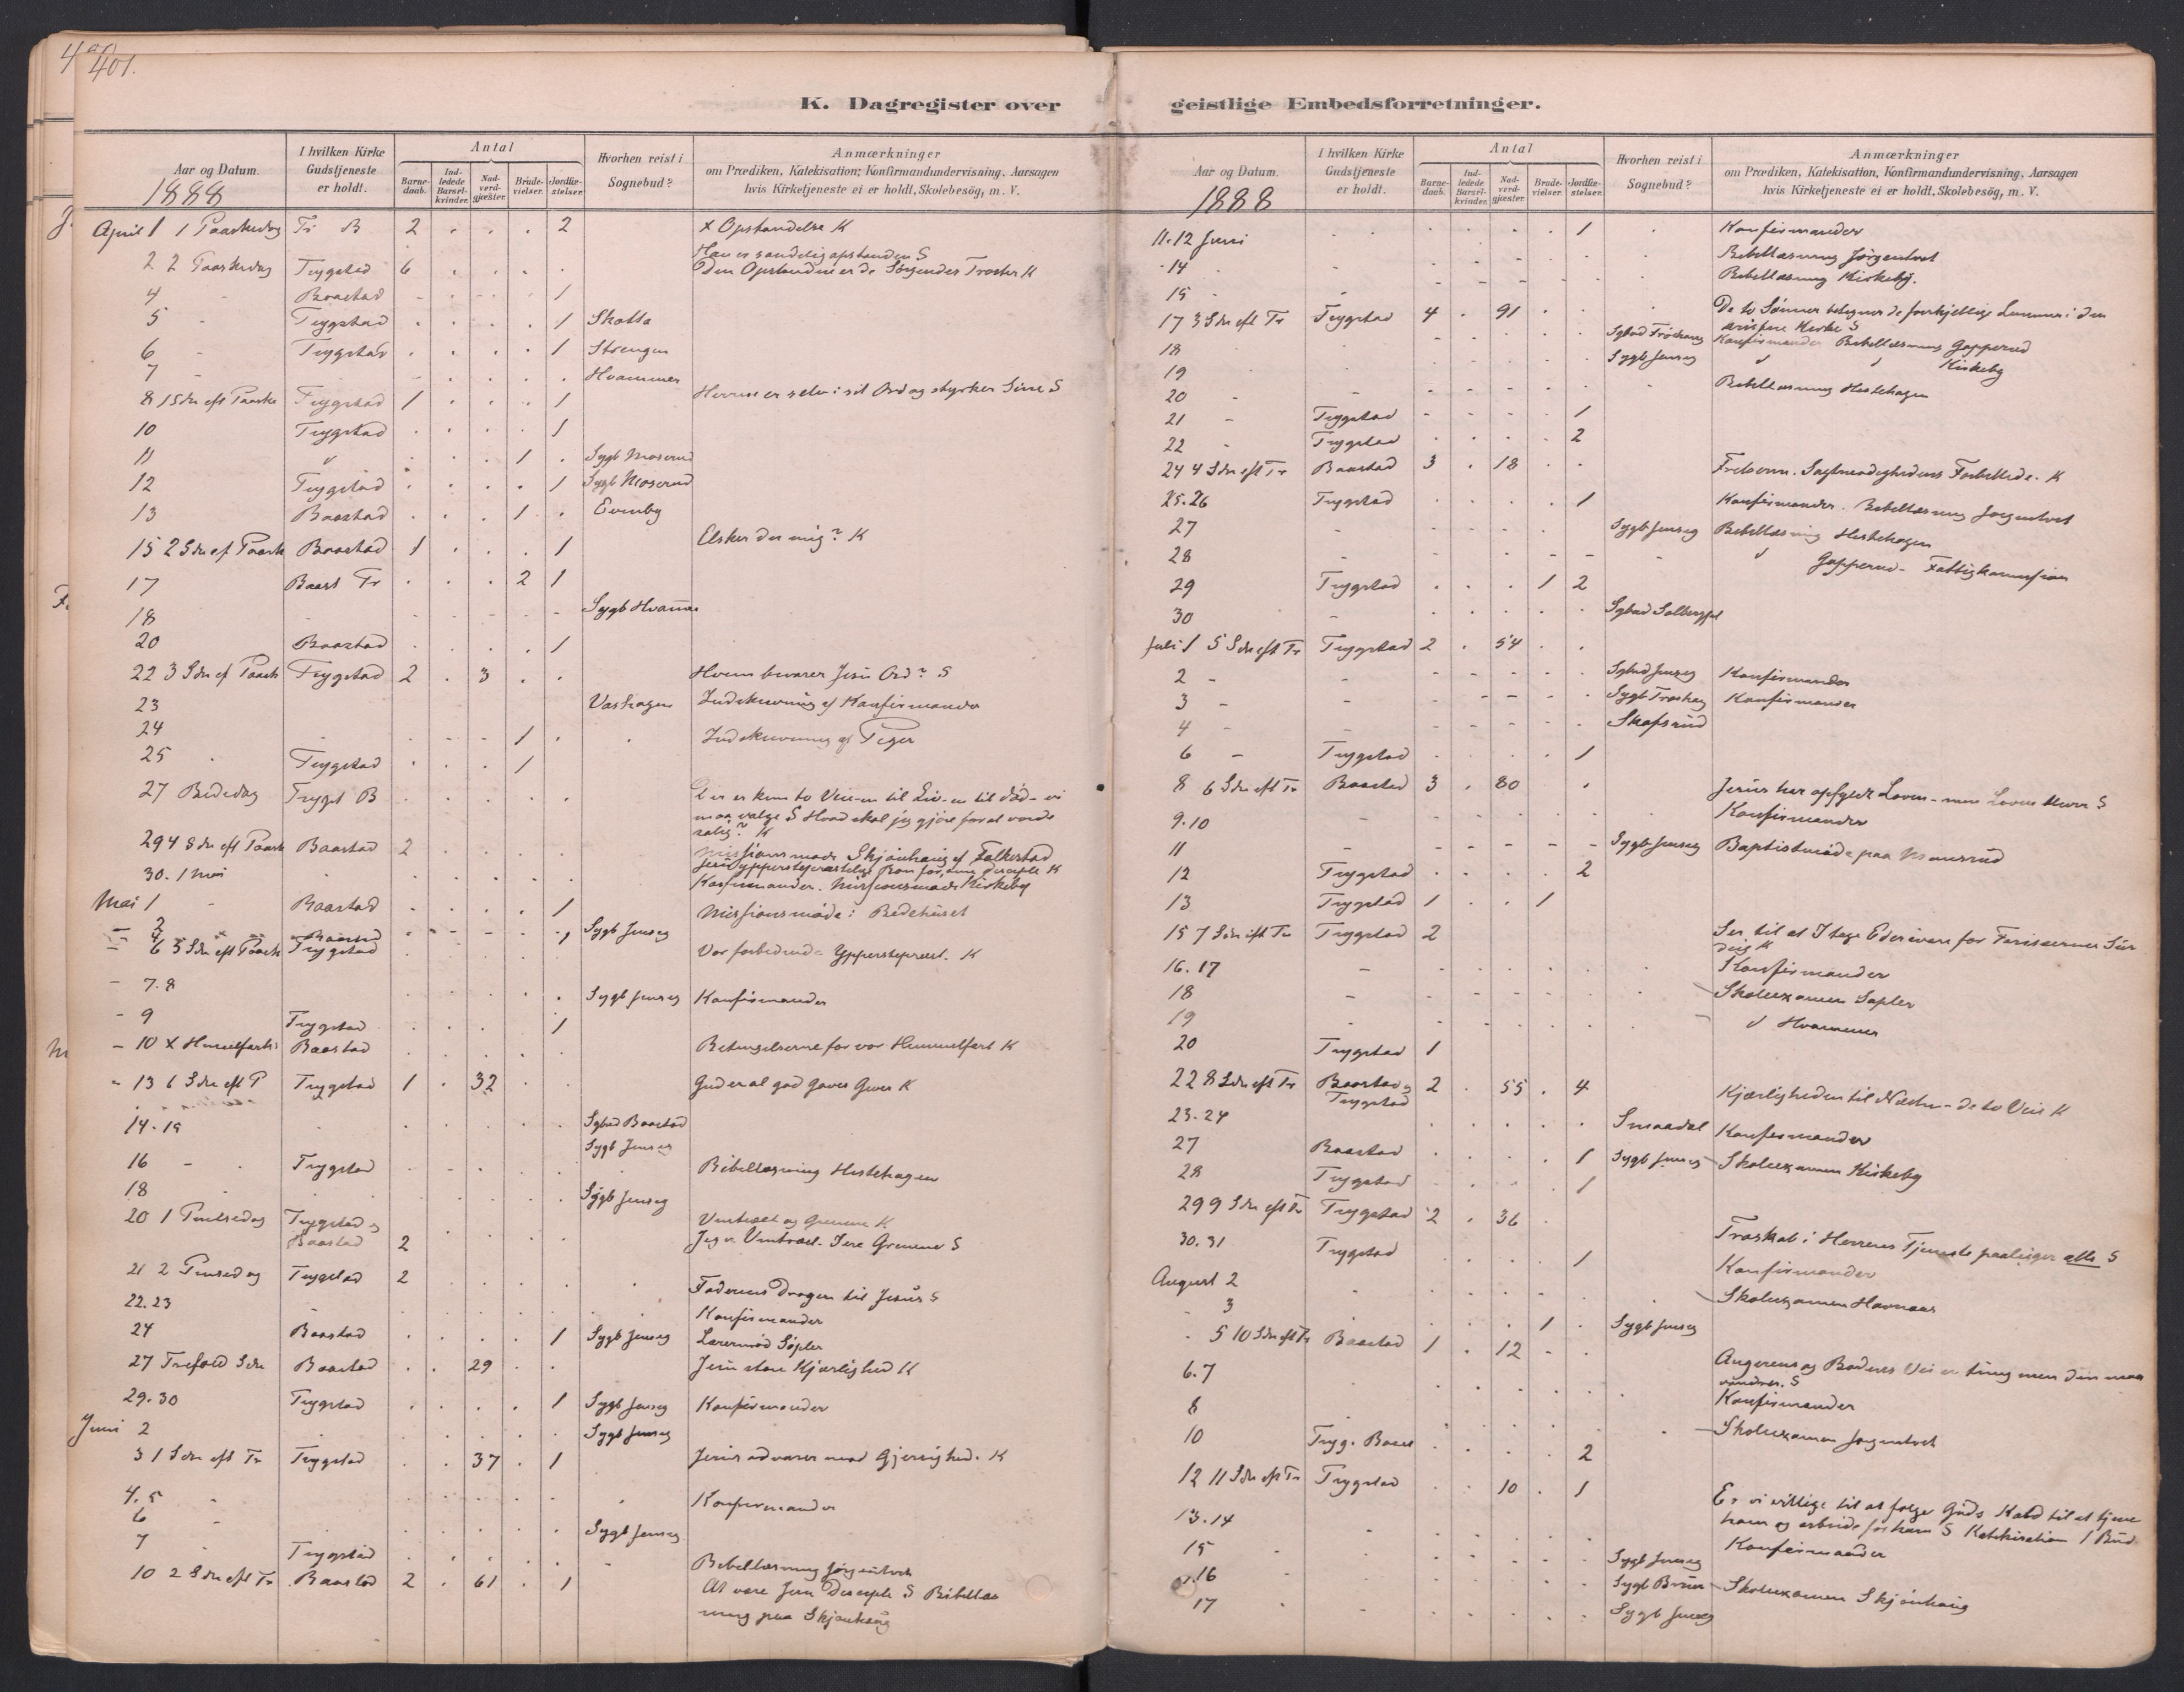 401.
K. Dagregister over
Aar og Datum.
1888
I hvilken Kirke Gudstjeneste er holdt.
Antal
Barne-daab.
Ind-ledede Barsel-kvinder.
Nad-verd-gjæster.
Brude-vielser.
Jordfæ-stelser.
Hvorhen reist i Sognebud?
Anmærkninger
om Prædiken, Katekisation, Konfirmandundervisning, Aarsagen
hvis Kirketjeneste ei er holdt, Skolebesög, m. V.
April 1 1 Paaskedag Tr B 2 . . . 2 x Opstandelse K
2 2 Paaskedag Trygstad 6 . . . . Han er sandelig opstanden S
Den Opstandne er de Sørgendes Trøster K
4 - Baastad . . . . 1
5 - Trygstad . . . . 1 Skotta
6 - Trygstad . . . . 1 Strengen
7 - . . . . . Hvammer
8 1 Sdn eft Paaske Trygstad 1 . . . 1 Herren er selv i sit Ord og styrker Sine S
10 Trygstad . . . . 1
11 . . . 1 . Sygb Moserud
12 Trygstad . . . . 1 Sygb Moserud
13 Baastad . . . 1 . Evenby
15 2 Sdn ef Paask Baastad 1 . . . 1 Elsker du mig? K
17 Baast Tr . . . 2 1
18 - - - - - Sygb Hvammer
20 Baastad . . . . 1
22 3 Sdn ef Paask Trygstad 2 . 3 . . Hvem bevarer Jesu Ord? S
23 Vashagen Indskrivning af Konfirmander
24 . - - - 1 . . Indskrivning af Piger
25 . Trygstad . . . 1
27 Bededag Trygst B . . . . . Der er kun to Veie - en til Liv - en til død - vi
maa vælge S Hvad skal jeg gjøre for at vorde
salig? K
29 4 Sdn eft Paask Baastad 2 . . . . Missionsmøde Skjønhaug af Falkestad
Jesu ypperstepræstelige Bøn for sine Disciple K
30. 1 Mai . . . . . Konfirmander. Missionsmøde Kirkeby
Mai 1 - Baastad . . . . 1 Missionsmøde i Bedehuset
- 2 - - - - - Sygb Jenseg
- 6 5 Sdn eft Paask Trygstad Vor forbedende Yppersteprest. K
- 7.8 . . . Sygb Jenseg Konfirmander
- 9 Trygstad . . . . 1
- 10 X Himmelfarts Baastad . . . . . Betingelserne for vor Himmelfart K
- 13 6 Sdn eft P Trygstad 1 . 32 . . Gud er al god Gaves Giver K
14-15 . . . . . . Sgbud Baastad
Sygb Jenseg
16 - . Trygstad . . . . . . Bibellæsning Hestehagen
18 . . . . . . Sygb Jenseg
20 1 Pintsedag Trygstad og Vintræet og Grenene K
Baastad 2 . . . . Jeg er Vintræet - I ere Grenene S
21 2 Pinsedag Trygstad 2 . . . . . Faderens Dragen til Jesus S
22.23 . . . . . . . Konfirmander
24 Baastad . . . . 1 Sygb Jenseg Lærermød Søpler
27 Trefold Sdn Baastad . . 29 . . Jesu store Kjærlighed K
29.30 Trygstad . . . . 1 Sygb Jenseg Konfirmander
Juni 2 . . . . . Sygb Jenseg
3 1 Sdn eft Tr Trygstad . . 37 . 1 Jesus advarer mod Gjerrighed. K
4.5 . . . . . . . Konfirmander
6 - . . . . . Sygb Jenseg
7 . Trygstad . . . . . - Bibellæsning Jørgentvet
10 2 Sdn eft Tr Baastad 2 . 61 . 1 At være Jesu Disciple S Bibellæs
ning paa Skjønhaug
geistlige Embedsforretninger.
Aar og Datum.
1888
I hvilken Kirke Gudstjeneste er holdt.
Antal
Barne-daab.
Ind-ledede Barsel-kvinder.
Nad-verd-gjæster.
Brude-vielser.
Jordfæ-stelser.
Hvorhen reist i Sognebud?
Anmærkninger
om Prædiken, Katekisation, Konfirmandundervisning, Aarsagen
hvis Kirketjeneste ei er holdt, Skolebesög, m. V.
11.12 Juni . . . . . 1 . Konfirmander
14 . - . . . . . . Bibellæsning Jørgentvet
15 - - - - - - - . Bibellæsning Kirkeby.
17 3 Sdn eft Tr Trygstad 4 . 91 . . . De to Sønner betegner de forskjellige Lemmer i den
kristne Kirke S
18 . . . . . Sgbud Frøshaug Konfirmander Bibellæsning Gopperud
19 . . . . . Sygb Jenseg Kirkeby
20 - - - - - - - . Bibellæsning Hestehagen
21 - Trygstad - - - - 1
22 - Trygstad . . . . 2
24 4 Sdn eft Tr Baastad 3 . 18 . . Frelseren. Sagtmodighedens Forbillede. K
25.26 Trygstad . . . . 1 Konfirmander. Bibellæsning Jørgentvet
27 - - - - - - Sygb Jenseg Bibellæsning Hestehagen
28 - - - - - - - Gopperud - Fattigkommission
29 Trygstad . . . 1 2
30 - . . . . . Sgbud Solberg
Juli 1 5 Sdn eft Tr Trygstad 2 . 54 . .
2 - - - - - - . Sgbud Jenseg Konfirmander
3 - - - - - - . Sygb Frøshaug Konfirmander
4 - - - - - - . Skofsrud
6 - Trygstad . . . . 1
8 6 Sdn eft Tr Baastad 3 . 80 . Jesus har opfyldt Loven - men Lovens Herre S
9.10 - . . . . . . Konfirmander
11 - - - - - - Sygb Jenseg Baptistmøde paa Monsrud
12 Trygstad . . . . 2
13 Trygstad 1 . . 1
15 7 Sdn eft Tr Trygstad 2 Ser til at I tage Eder ivare for Farisæernes Sur
deig K
16.17 - . . . . . . Konfirmander
18 - - - - - . . Skoleexamen Søpler
19 . . . . . . . Hvammer
20 Trygstad 1
22 8 Sdn eft Tr Baastad og 2 . 55 . 4 Kjærligheden til Næsten - de to Veie K
Trygstad
23.24 . . . . . Smaadal Konfirmander
27 Baastad . . . . 1 Sygb Jenseg Skoleexamen Kirkeby
28 Trygstad . . . . 1
29 9 Sdn eft Tr Trygstad 2 . 36 . Troskab i Herrens Tjeneste paaligger alle S
30.31 Trygstad . . . . 1 Konfirmander
August 2 . . . . . . . Skoleexamen Havnaas
- 3 . . . . 1 . Sygb Jenseg
- 5 10 Sdn eft Tr Baastad 1 . 12 - . Angerens og Bodens Vei er tung men den maa
vandres. S
6.7 . . . . . . . Konfirmander
8 . . . . . . . Skoleexamen Jørgentvet
10 Tryg. Baast . . . . 2
12 11 Sdn eft Tr Trygstad . . 10 . 1 Er vi villige til at følge Guds Kald til at tjene
ham og arbeide for ham S Katekisation 1 Bud
13.14 . . . . . . . Konfirmander
15 - - . - - - . Sygb Jenseg
16 . . . . . . Sygb Skoleexamen Skjønhaug
17 . - . . . . Sygb Jenseg